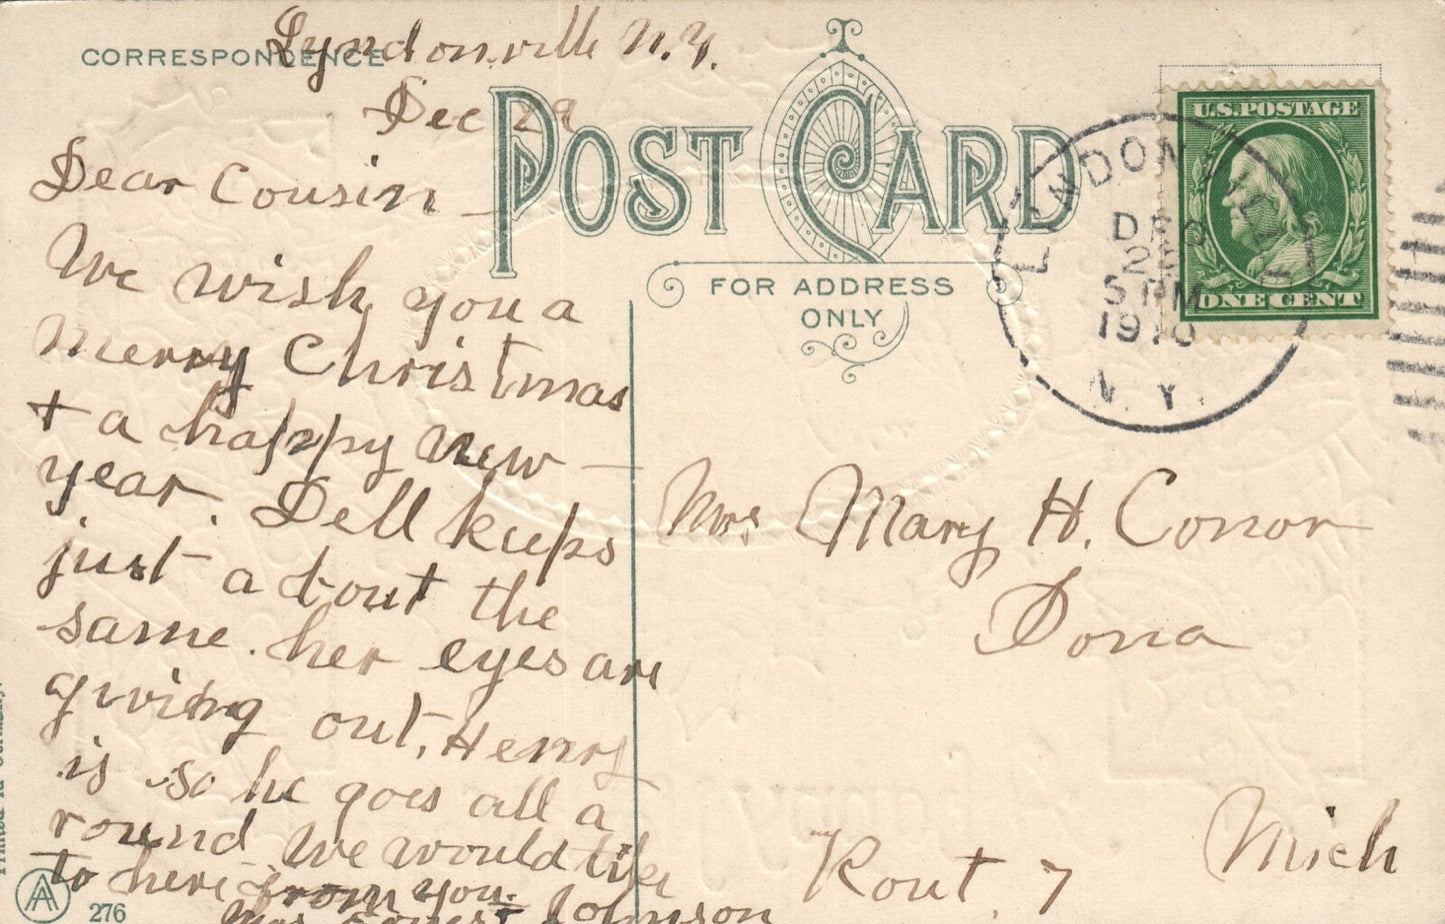 CORRESPONDENCE
Lyndonville N.Y.
Dec 29
POST CARD
FOR ADDRESS
ONLY
Dear Cousin
We wish you a
merry Christmas
+ a happy New
year. Dell keeps
just about the
same. her eyes are
giving out, Henry
is so he goes all a
round. We would like
to here from you.
Mrs. Johnson
Mrs Mary H. Conor
Dona
Mich
Rout. 7
U.S. POSTAGE
ONE CENT
LYNDONVILLE
DEC
5 PM
1910
N.Y.
Printed in Germany.
AA
276